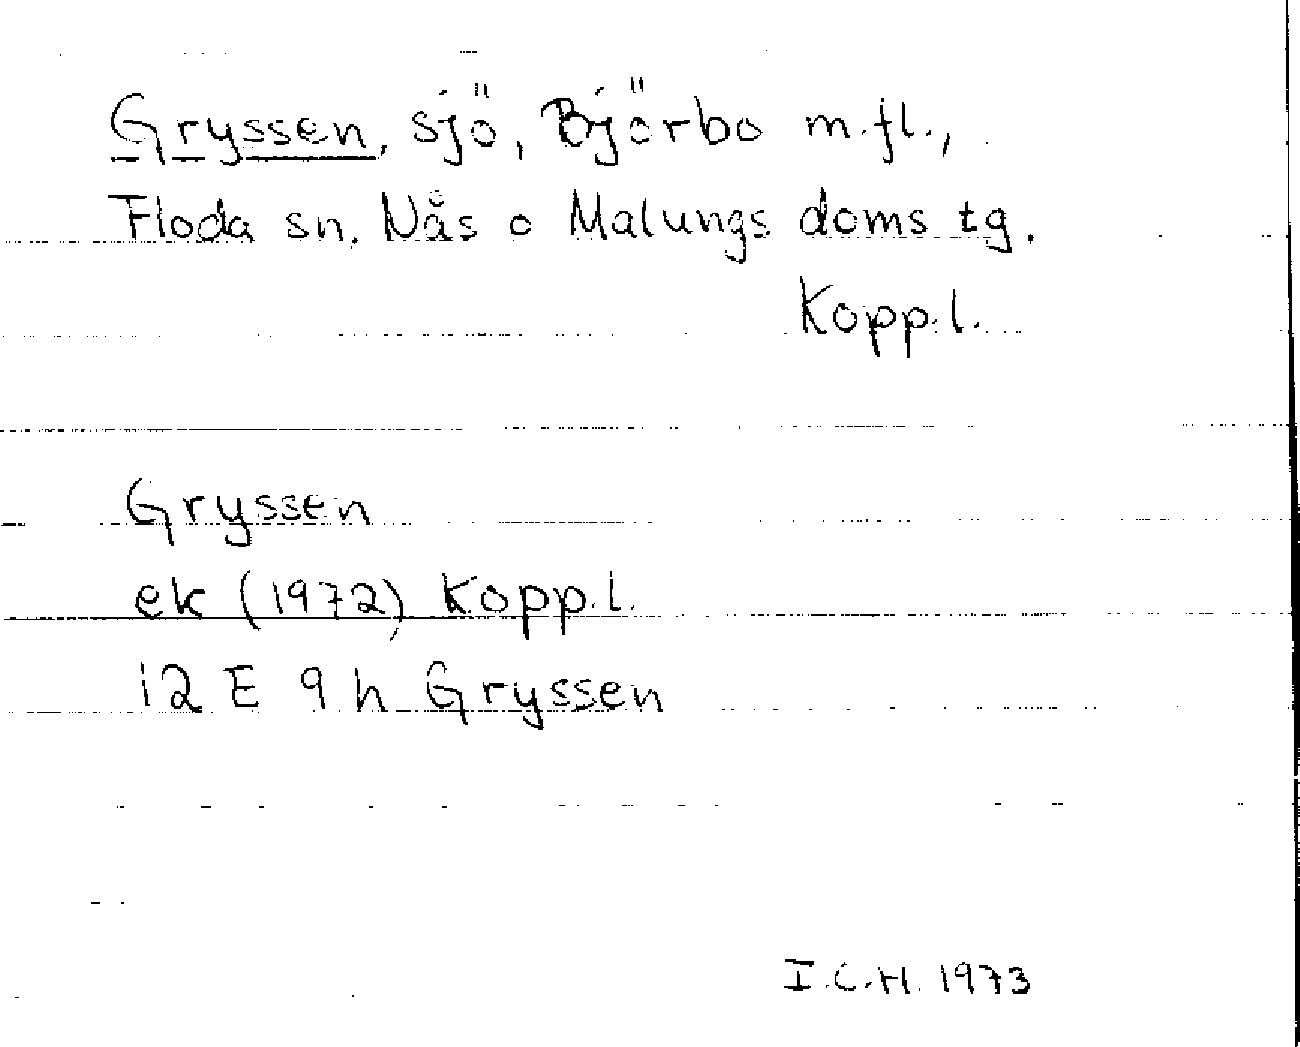 Gryssen, sjö, Björbo m.fl.,
Floda sn. Nås o Malungs doms tg.
Kopp.l.
Gryssen
ek (1972) Kopp.l.
12 E 9 h Gryssen
I.C.H. 1973